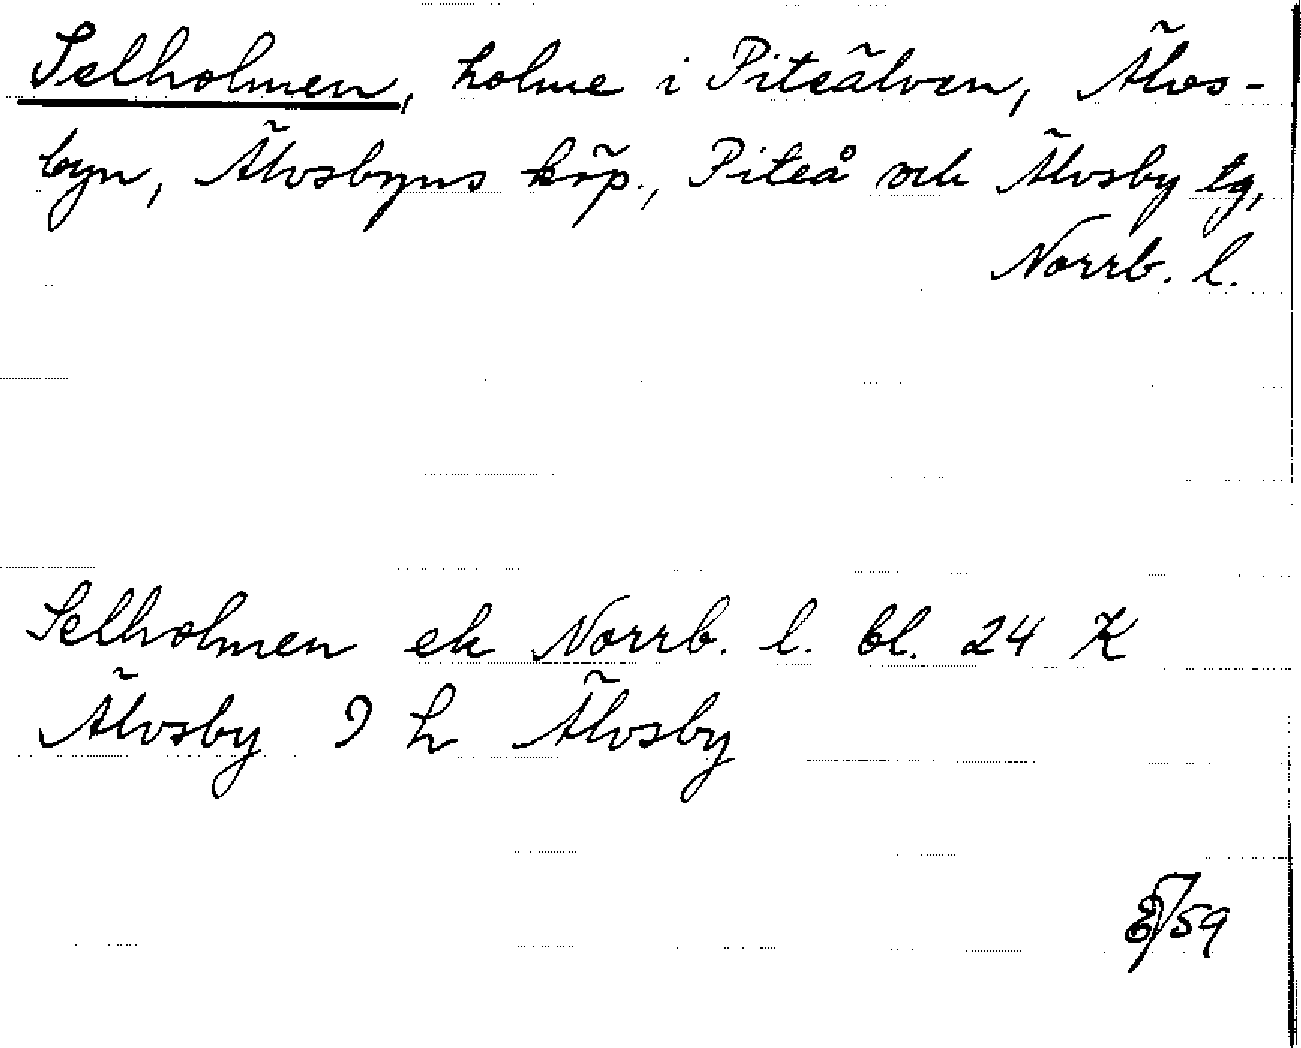 Selholmen, holme i Piteälven, Älvs-
byn, Älvsbyns köp., Piteå och Älvsby tg,
Norrb. l.
Selholmen ek Norrb. l. bl. 24 K
Älvsby 9 h Älvsby
/59